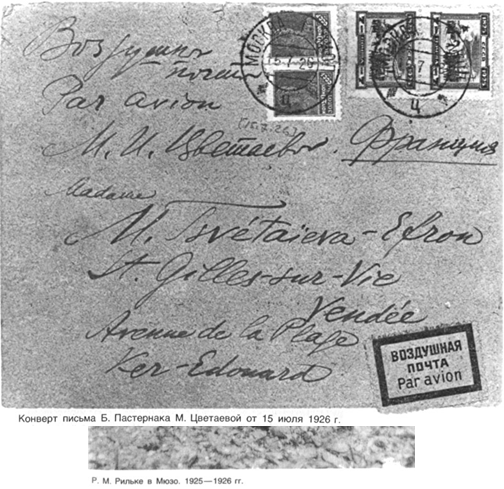 Воздушной
почтой
Par avion
МОСКВА
15.7.26
Ц
7
Ц
(15.7.26)
М. И. Цветаевой. Франция
Madame
M. Tsvétaïeva-Efron
St. Gilles-sur-Vie
Vendée
Avenue de la Plage
Ker-Edouard
ВОЗДУШНАЯ
ПОЧТА
Par avion
Конверт письма Б. Пастернака М. Цветаевой от 15 июля 1926 г.
Р. М. Рильке в Мюзо. 1925—1926 гг.